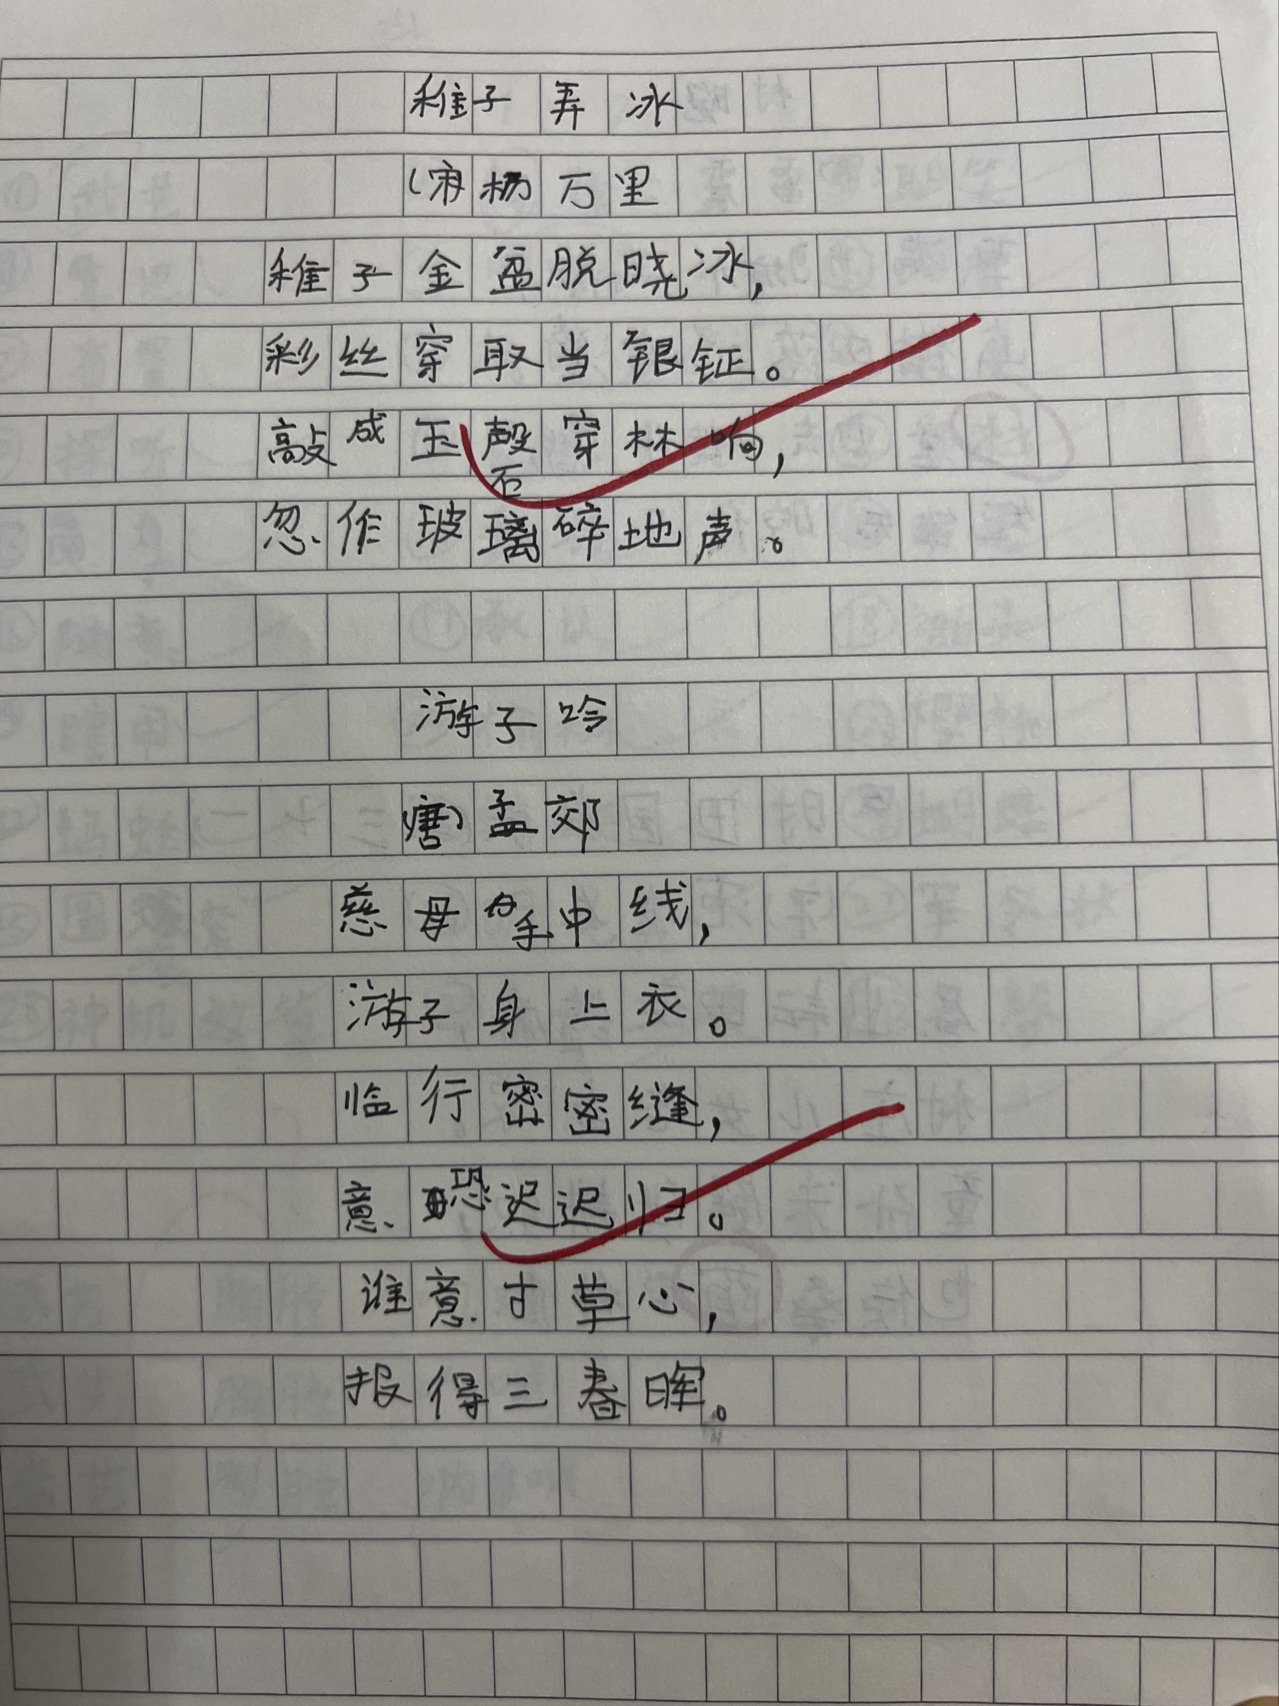 稚子弄冰
(宋杨万里
稚子金盆脱晓冰,
彩丝穿取当银钲。
敲成玉磬穿林响,
忽作玻璃碎地声。
游子吟
唐)孟郊
慈母手中线,
游子身上衣。
临行密密缝,
意恐迟迟归。
谁意寸草心,
报得三春晖。